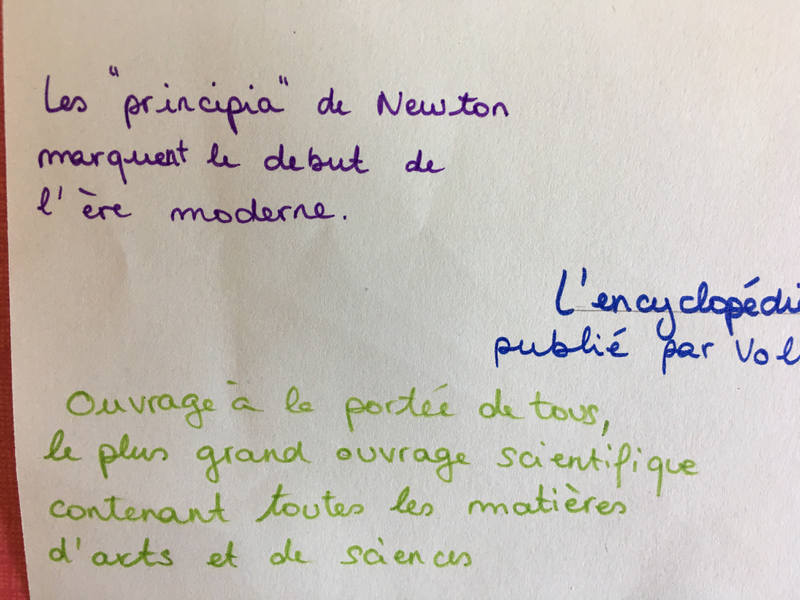 Les "principia" de Newton
marquent le debut de
l'ère moderne.
L'encyclopédi
publié par Vol
Ouvrage à la portée de tous,
le plus grand ouvrage scientifique
contenant toutes les matières
d'arts et de sciences